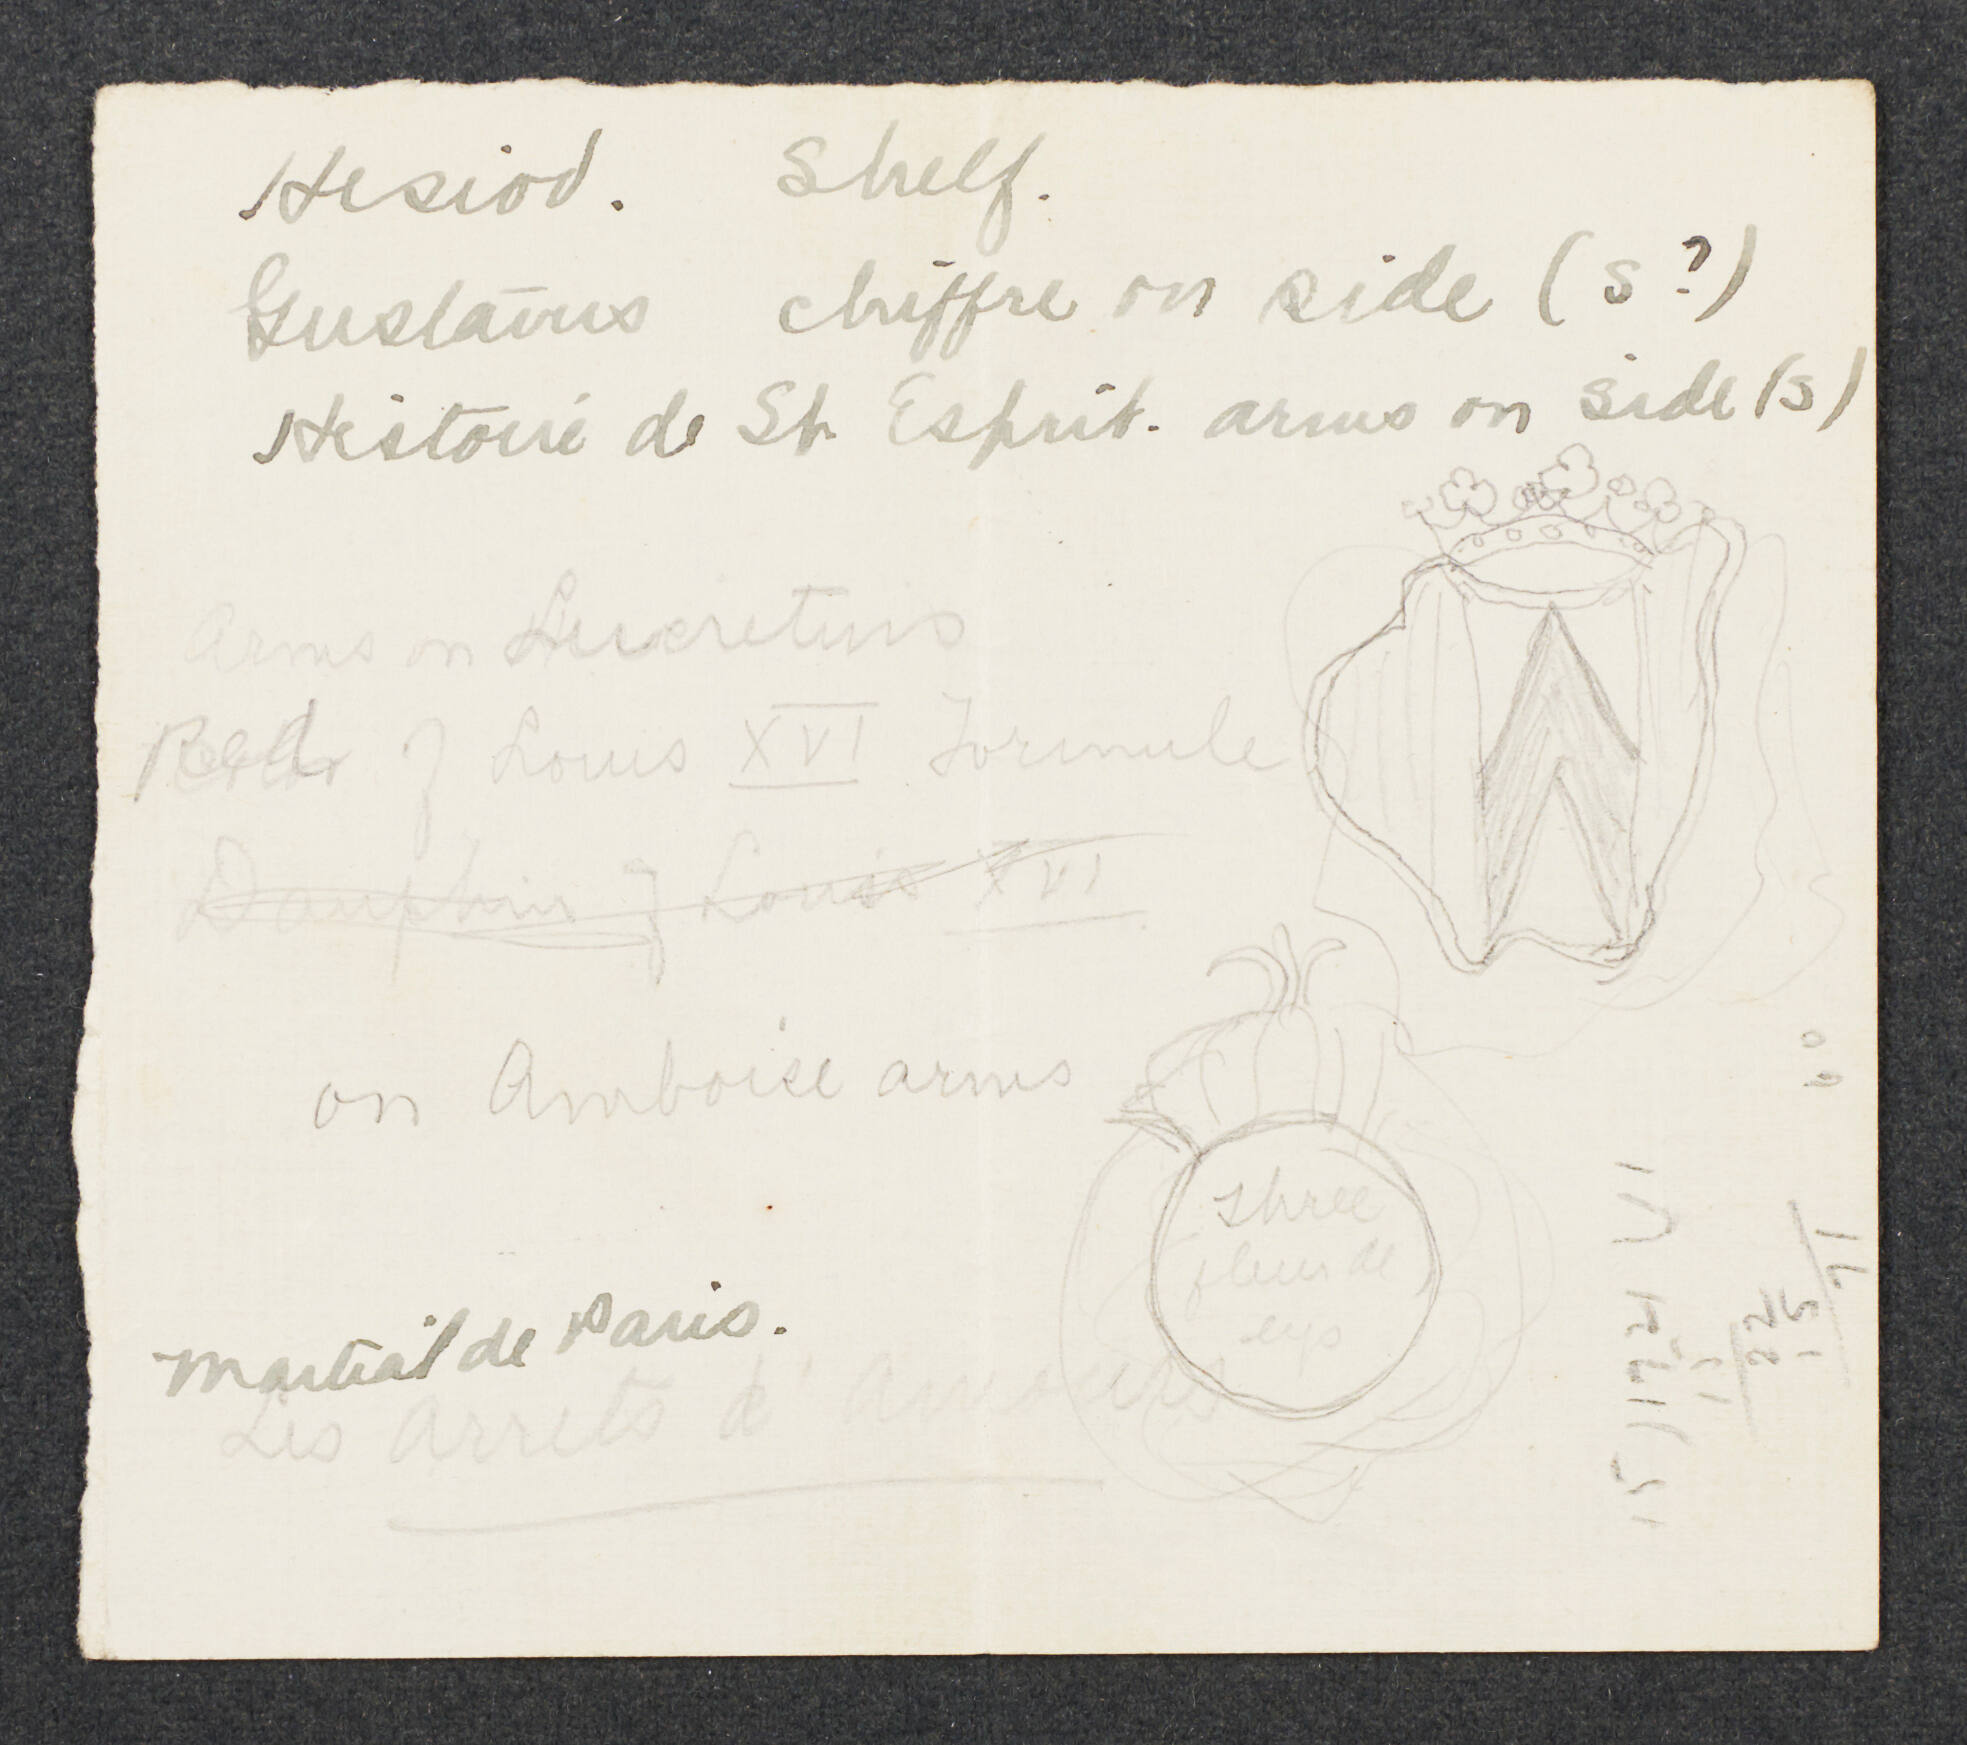 Hesiod. Shelf.
Gustavus chiffre on side (s?)
Histoire de St. Esprit. arms on side (s)
Arms on Lucretius
of Louis XVI Formule
Dauphin of Louis XVI
on Amboise arms
three
fleur de
lys
Martial de Paris.
Les Arrets d'Amours